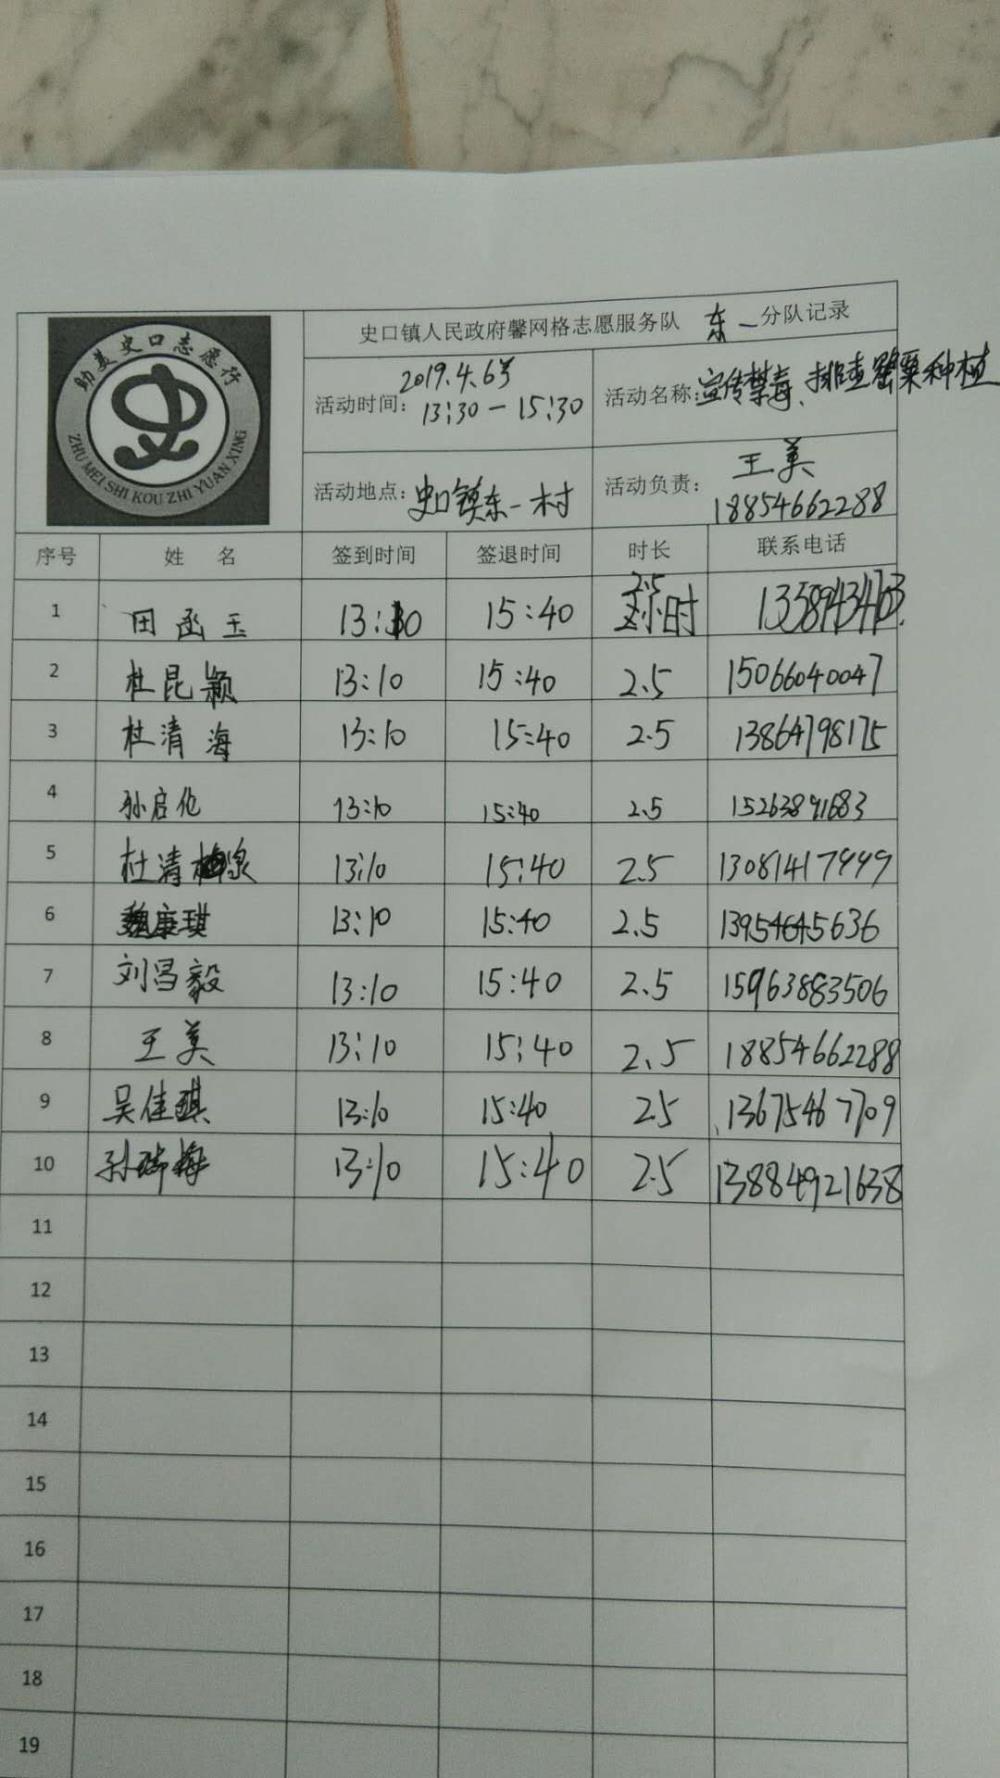 助美史口志愿行
ZHU MEI SHI KOU ZHI YUAN XING
史口镇人民政府馨网格志愿服务队 东一 分队记录
活动时间: 2019.4.6号
13:30-15:30
活动名称: 宣传禁毒、排查罂粟种植
活动地点: 史口镇东一村
活动负责: 王美
18854662288
序号 姓名 签到时间 签退时间 时长 联系电话
1 田函玉 13:10 15:40 2.5小时 13589434763
2 杜昆颖 13:10 15:40 2.5 15066040047
3 杜清海 13:10 15:40 2.5 13864798175
4 孙启伦 13:10 15:40 2.5 15263891683
5 杜清泉 13:10 15:40 2.5
6 魏康琪 13:10 15:40 2.5 13954645636
7 刘昌毅 13:10 15:40 2.5 15963883506
8 王美 13:10 15:40 2.5 18854662288
9 吴佳琪 13:10 15:40 2.5 13675467709
10 孙瑞梅 13:10 15:40 2.5 13884921638
11
12
13
14
15
16
17
18
19